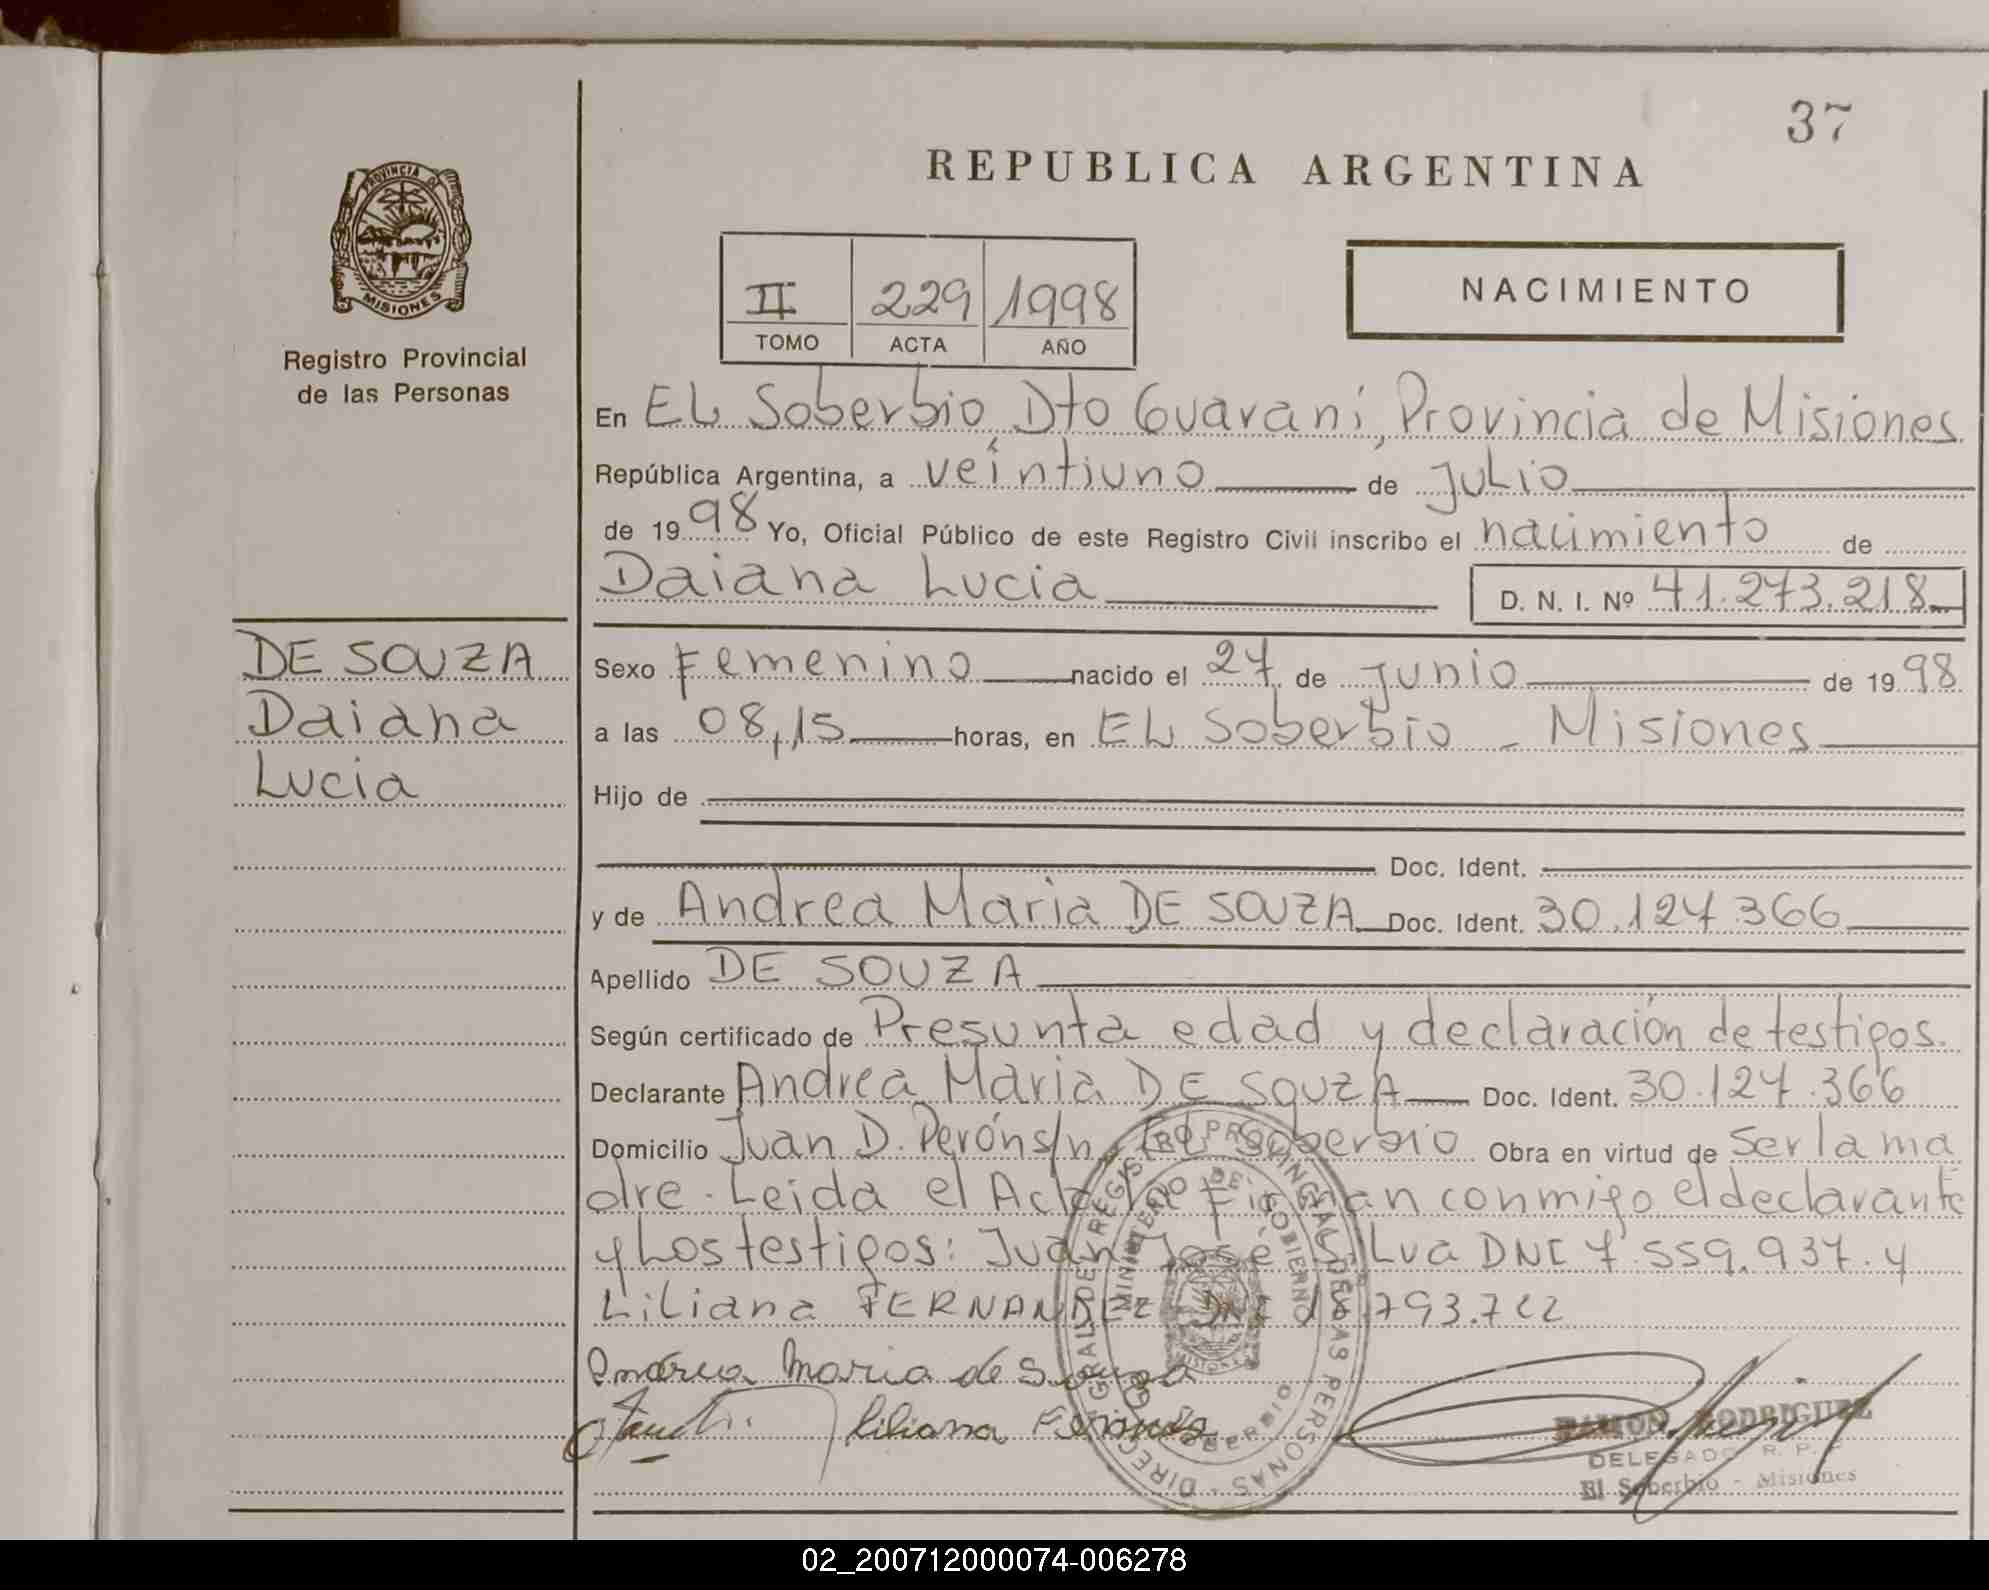 37
REPUBLICA ARGENTINA
PROVINCIA DE
MISIONES
Registro Provincial
de las Personas
II 229 1998
TOMO ACTA AÑO
NACIMIENTO
En EL Soberbio, Dto Guaraní, Provincia de Misiones
República Argentina, a veíntiuno de Julio
de 1998 Yo, Oficial Público de este Registro Civil inscribo el nacimiento de
Daiana Lucia D. N. I. Nº 41.273.218
DE SOUZA
Daiana
Lucia
Sexo Femenino nacido el 27 de Junio de 1998
a las 08,15 horas, en EL Soberbio - Misiones
Hijo de
Doc. Ident.
y de Andrea Maria DE SOUZA Doc. Ident. 30.127.366
Apellido DE SOUZA
Según certificado de Presunta edad y declaración de testigos.
Declarante Andrea Maria DE SOUZA Doc. Ident. 30.127.366
Domicilio Juan D. Perón s/n, EL Soberbio Obra en virtud de Ser la ma
dre. Leida el Acta la Firman conmigo el declarante
y Los testigos: Juan Jose SiLva DNI 7.559.937. y
Liliana FERNANDEZ DNI 18.793.722
Andrea Maria de Souza
Liliana Fernandez
DIRECCION GRAL DEL REGISTRO PROVINCIAL DE LAS PERSONAS
MINISTERIO DE GOBIERNO
MISIONES
SOBERBIO
RAMON RODRIGUEZ
DELEGADO R. P. P.
El Soberbio - Misiones
02_200712000074-006278